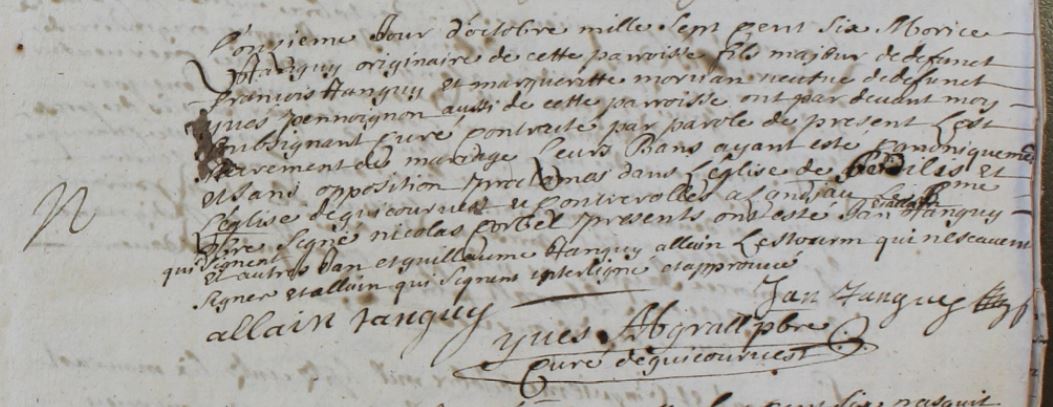 L'onsieme Jour d'octobre mille sept cent six Morice
Tanguy originaire de cette parroisse fils majeur dedefunct
francois Tanguy et margueritte morvan veufue dedefunct
yves pennoignon aussi de cette parroisse ont par devant moy
soubsignant Curé contracté par parole de present Lest
sacrement de mariage leurs Bans ayant esté Canoniquement
et sans opposition proclames dans L'église de et
L'église deguicourvest et controllés a Landiuisiau
signé nicolas corbel presents ont esté Jan Tanguy
qui signent
et autres Jan et guillaume Tanguy allain Lestourm qui nescavent
signer et allain qui signent interligne et approuvé
Jan Tanguy
allain tanguy
yves Abgrall pbre
curé deguicourvest